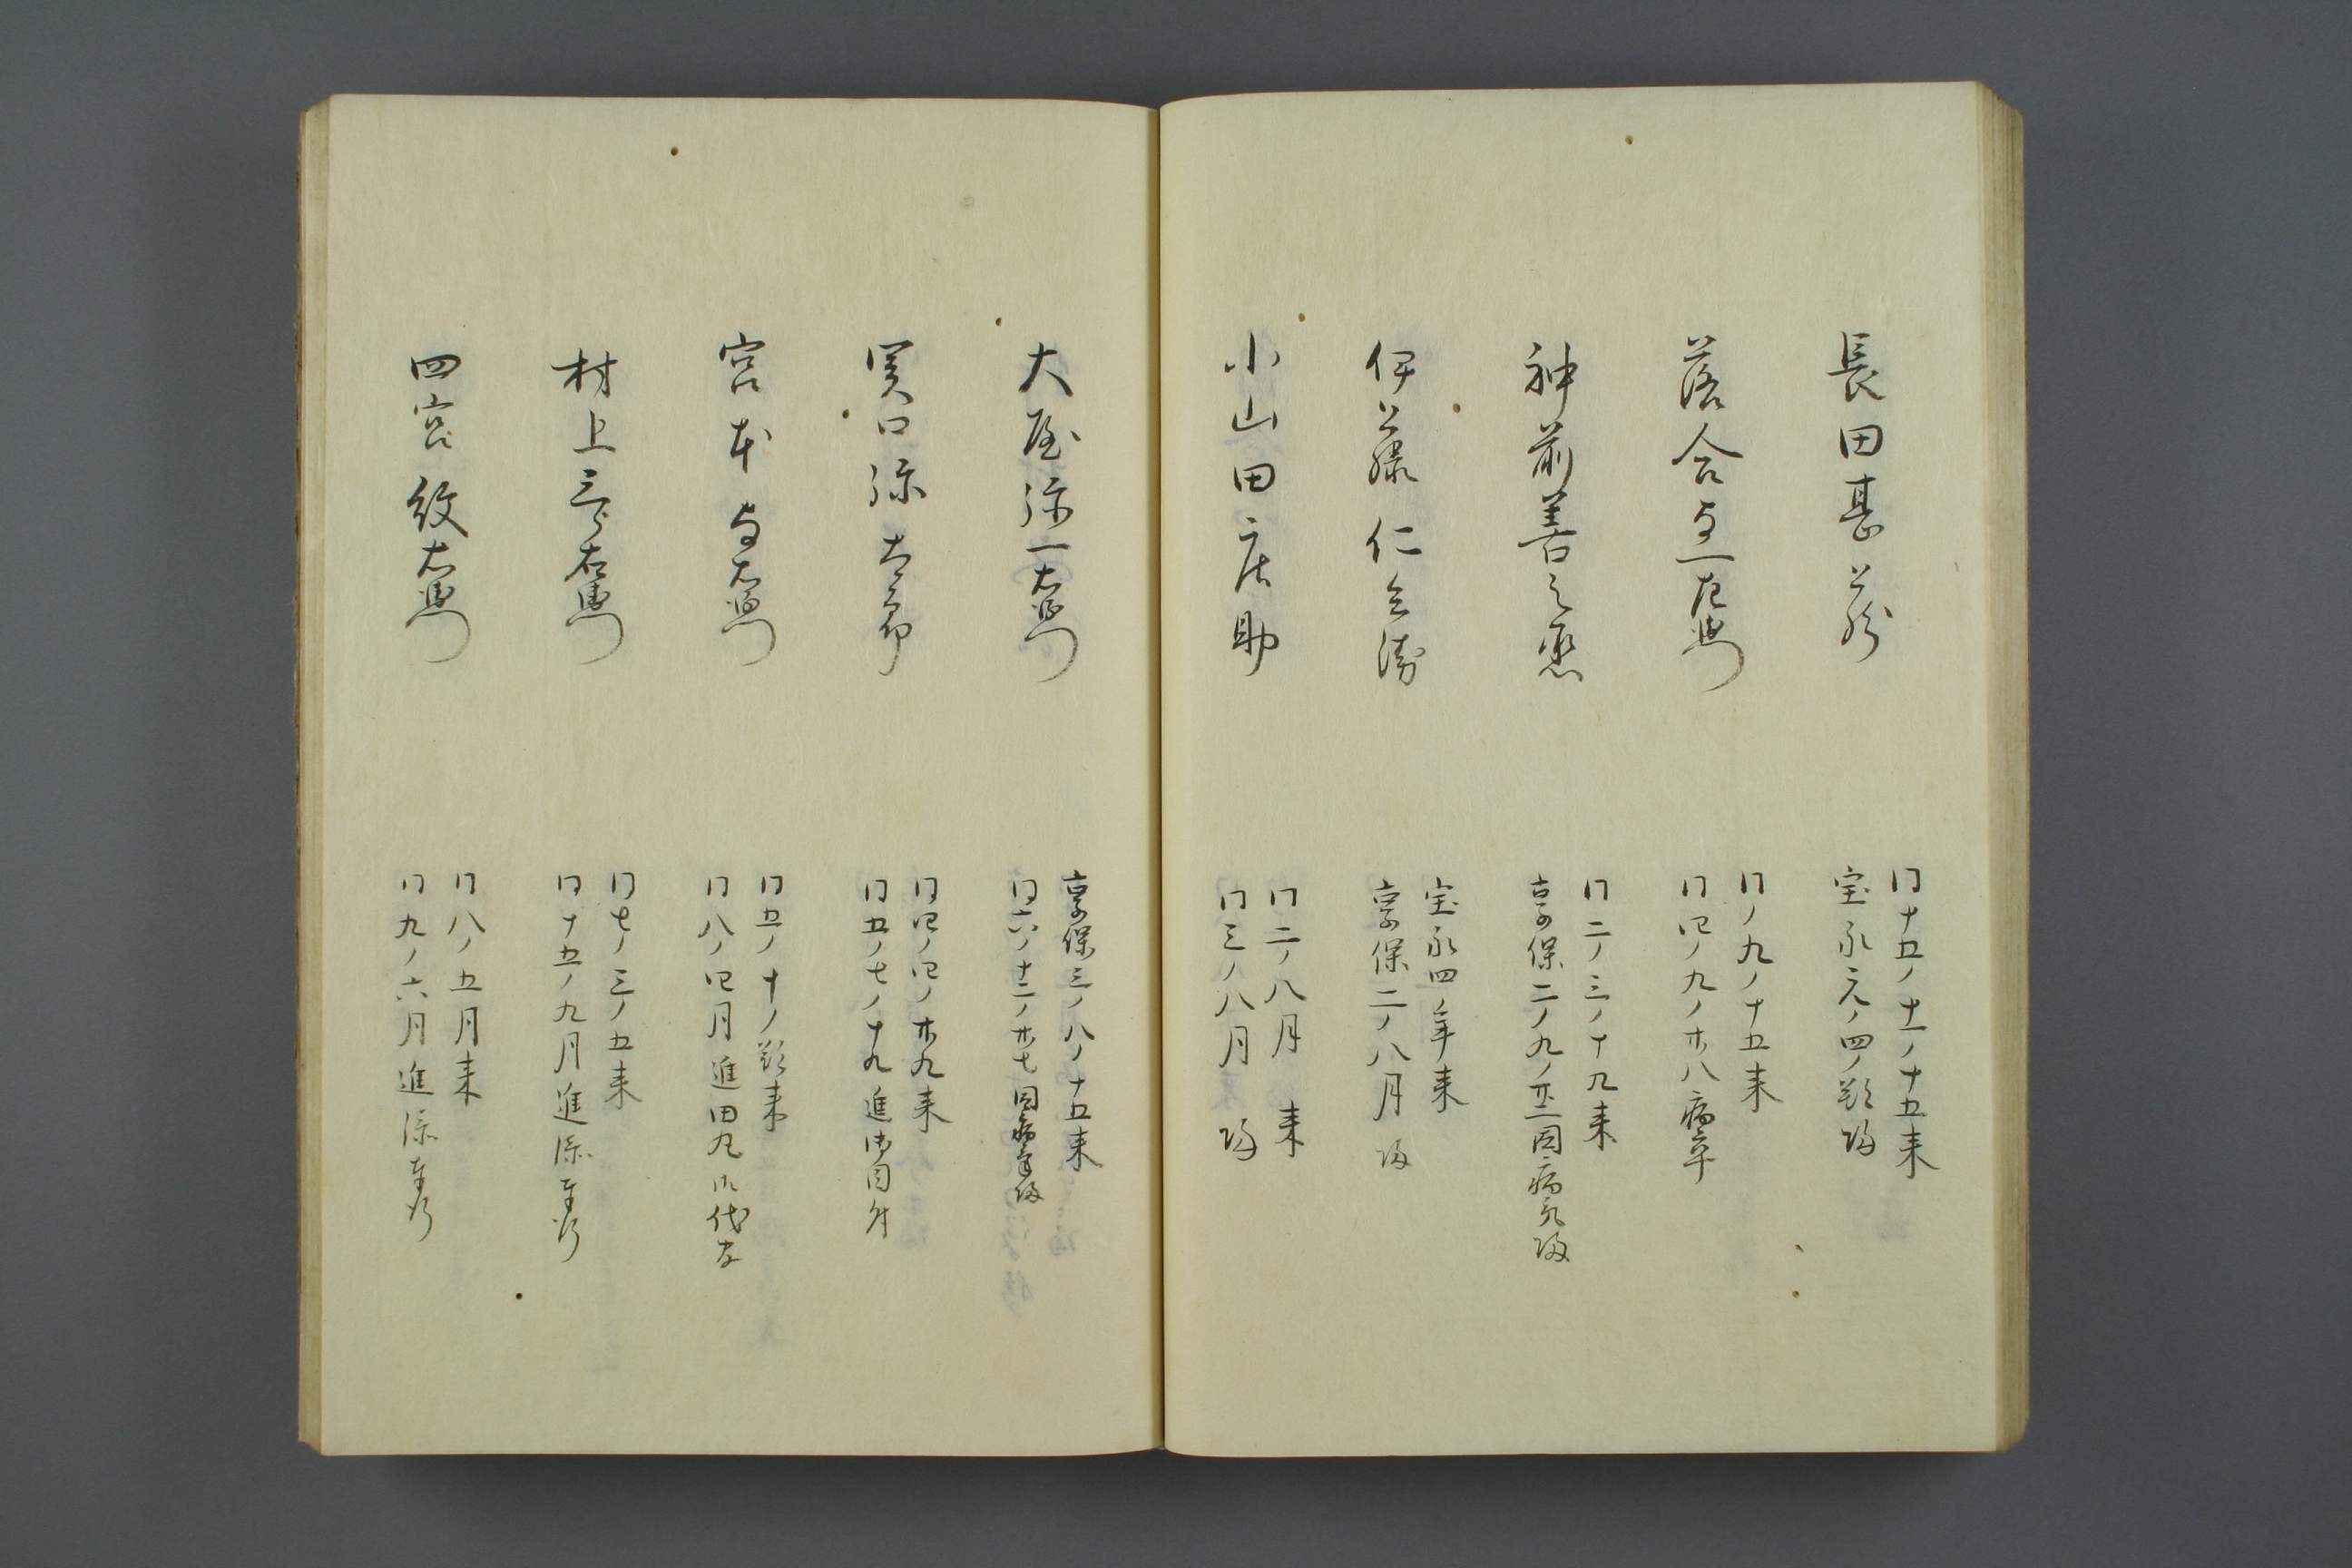 長田甚兵衛
同十五ノ十一ノ十五来
宝永元ノ四ノ朔帰
落合与一左衛門
同ノ九ノ十五来
同四ノ九ノ廿八病卒
神前善之丞
同二ノ三ノ十九来
享保二ノ九ノ廿二因病気帰
伊藤仁兵衛
宝永四ノ年来
享保二ノ八月帰
小山田庄助
同二ノ八月来
同三ノ八月帰
大屋弥一右衛門
享保三ノ八ノ十五来
同六ノ十二ノ廿七因病気帰
関口弥太郎
同四ノ四ノ廿九来
同五ノ七ノ十九進御目付
宮本与右衛門
同五ノ十ノ朔来
同八ノ四月進田丸御代官
村上三郎右衛門
同七ノ三ノ五来
同十五ノ九月進添奉行
四宮紋右衛門
同八ノ五月来
同九ノ六月進添奉行